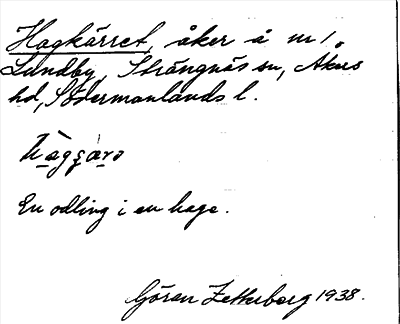 Hagkärret, åker å nr 1.
Lundby, Strängnäs sn, Åkers
hd, Södermanlands l.
En odling i en hage.
Göran Zetterberg 1938.